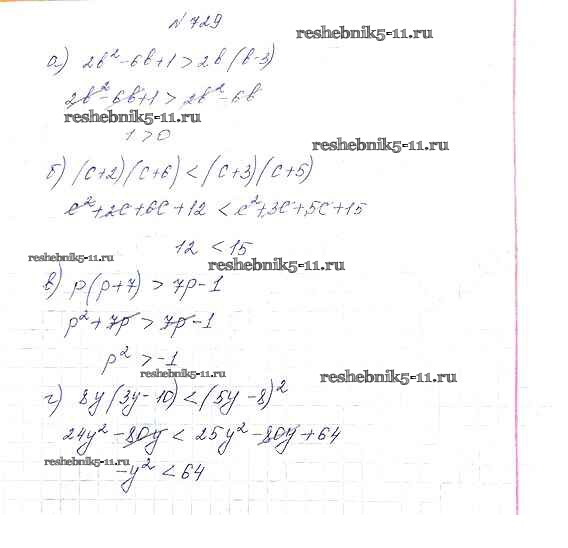 № 729
reshebnik5-11.ru
а) 2b² - 6b + 1 > 2b (b - 3)
2b² - 6b + 1 > 2b² - 6b
reshebnik5-11.ru
1 > 0
reshebnik5-11.ru
б) (c+2)(c+6) < (c+3)(c+5)
c² + 2c + 6c + 12 < c² + 3c + 5c + 15
12 < 15
reshebnik5-11.ru
reshebnik5-11.ru
в) p(p+7) > 7p - 1
p² + 7p > 7p - 1
p² > -1
reshebnik5-11.ru
reshebnik5-11.ru
г) 8y(3y - 10) < (5y - 8)²
24y² - 80y < 25y² - 80y + 64
reshebnik5-11.ru
-y² < 64